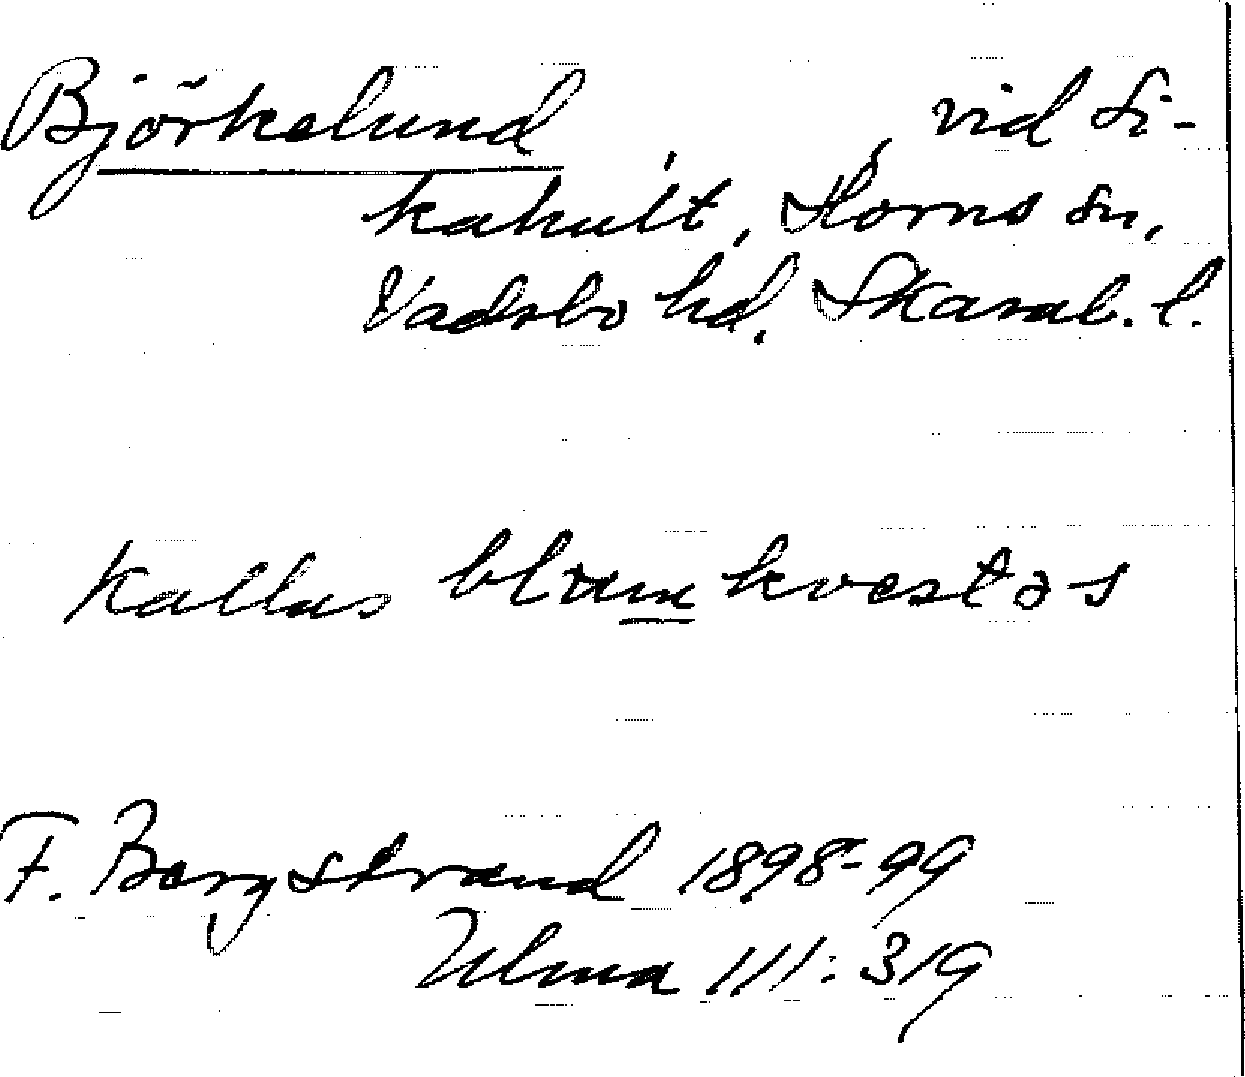 Björkelund, vid Si-
kahult, Horns sn,
Vadsbo hd. Skarab. l.
Kallas blomkvastəs
F. Bergstrand 1898-99
Ulma 111:319